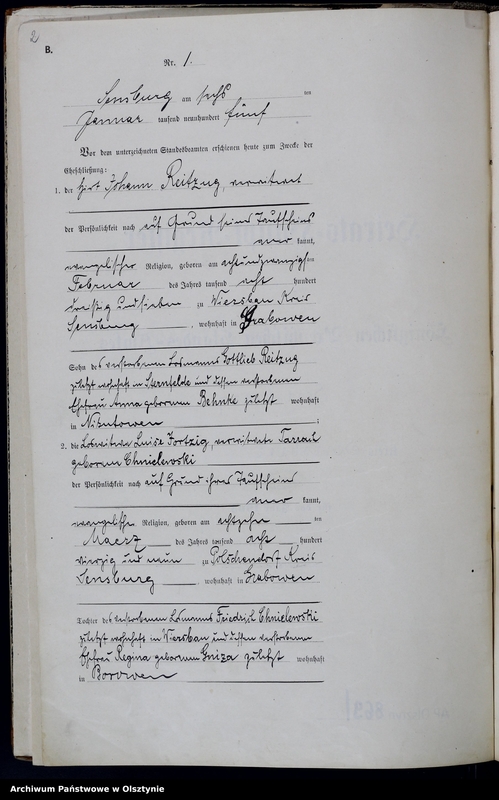 2
B.
Nr. 1.
Sensburg am sechs ten
Januar tausend neunhundert fünf
Vor dem unterzeichneten Standesbeamten erschienen heute zum Zwecke der
Eheschließung:
1. der Hirt Johann Reitzug, verwitwet
der Persönlichkeit nach auf Grund seines Taufscheins
aner kannt,
evangelischer Religion, geboren am achtundzwanzigsten
Februar des Jahres tausend acht hundert
dreißig und sieben zu Wiersbau, Kreis
Sensburg, wohnhaft in Grabowen
Sohn des verstorbenen Losmanns Gottlieb Reitzug
zuletzt wohnhaft in Sternfelde und dessen verstorbenen
Ehefrau Anna geborenen Behnke zuletzt wohnhaft
in Nikutowen ;
2. die Loswitwe Luise verwitwete
geborene Chmielewski
der Persönlichkeit nach auf Grund ihres Taufscheins
aner kannt,
evangelischer Religion, geboren am achtzehn ten
Maerz des Jahres tausend acht hundert
vierzig und neun zu Polschendorf, Kreis
Sensburg, wohnhaft in Grabowen
Tochter des verstorbenen Losmanns Friedrich Chmielewski
zuletzt wohnhaft in Wiersbau und dessen verstorbenen
Ehefrau Regina geborenen Gniza zuletzt wohnhaft
in Borowen
Archiwum Państwowe w Olsztynie